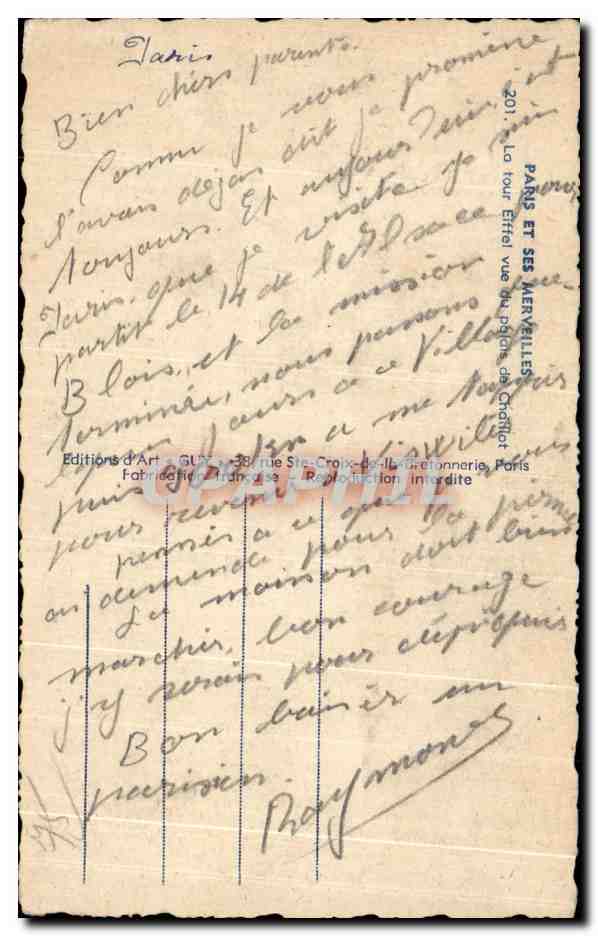 Paris
Bien chers parents.
Comme je vous
l'avais déjas dit je promène
toujours. Et aujour d'hui, c'est
Paris, que je visite je suis
partit le 14 de l'Alsace pour
Blois, et la mission
terminée, nous passons
jours a ce Village
puis a me
pour
pensés a ce que vous
ai demandé pour la
La maison doit bien
marcher, bon courage
j'y serais pour dépiquer
Bon baiser un
parisien.
Raymond
75
PARIS ET SES MERVEILLES
201. - La tour Eiffel vue du palais de Chaillot
Editions d'Art "GUY", 38, rue Ste-Croix-de-la-Bretonnerie, Paris
Fabrication française - Reproduction interdite
CPAPHIL